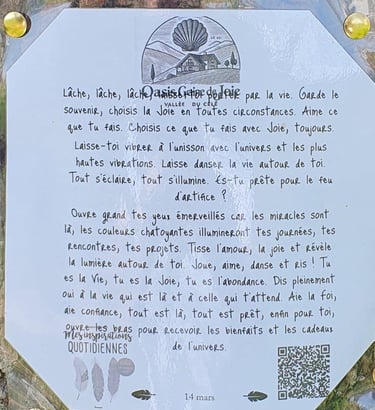 Oasis Gaïa de Joie
VALLÉE DU CÉLÉ
Lâche, lâche, lâche, laisse-toi porter par la vie. Garde le
souvenir, choisis la Joie en toutes circonstances. Aime ce
que tu fais. Choisis ce que tu fais avec Joie, toujours.
Laisse-toi vibrer à l'unisson avec l'univers et les plus
hautes vibrations. Laisse danser la vie autour de toi.
Tout s'éclaire, tout s'illumine. Es-tu prête pour le feu
d'artifice ?
Ouvre grand tes yeux émerveillés car les miracles sont
là, les couleurs chatoyantes illumineront tes journées, tes
rencontres, tes projets. Tisse l'amour, la joie et révèle
la lumière autour de toi. Joue, aime, danse et ris ! Tu
es la Vie, tu es la Joie, tu es l'abondance. Dis pleinement
oui à la vie qui est là et à celle qui t'attend. Aie la foi,
aie confiance, tout est là, tout est prêt, enfin pour toi,
ouvre les bras pour recevoir les bienfaits et les cadeaux
de l'univers.
Mes inspirations
QUOTIDIENNES
14 mars